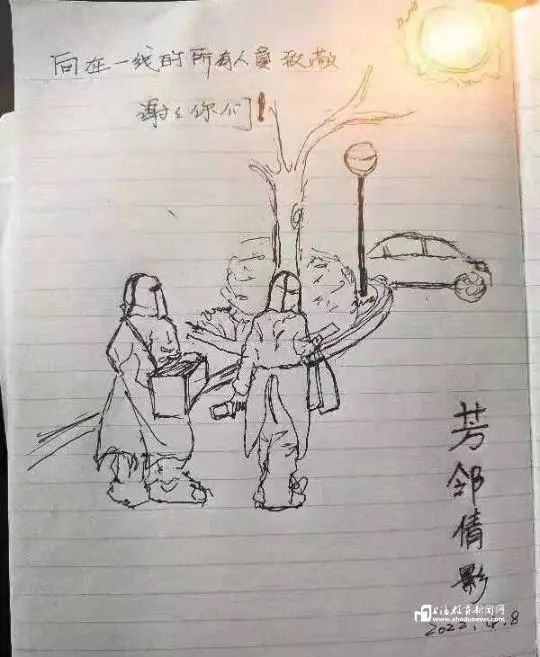 向在一线的所有人员致敬
谢谢你们！
芳邻倩影
上海教育新闻网
www.shedunews.com
2022.4.8